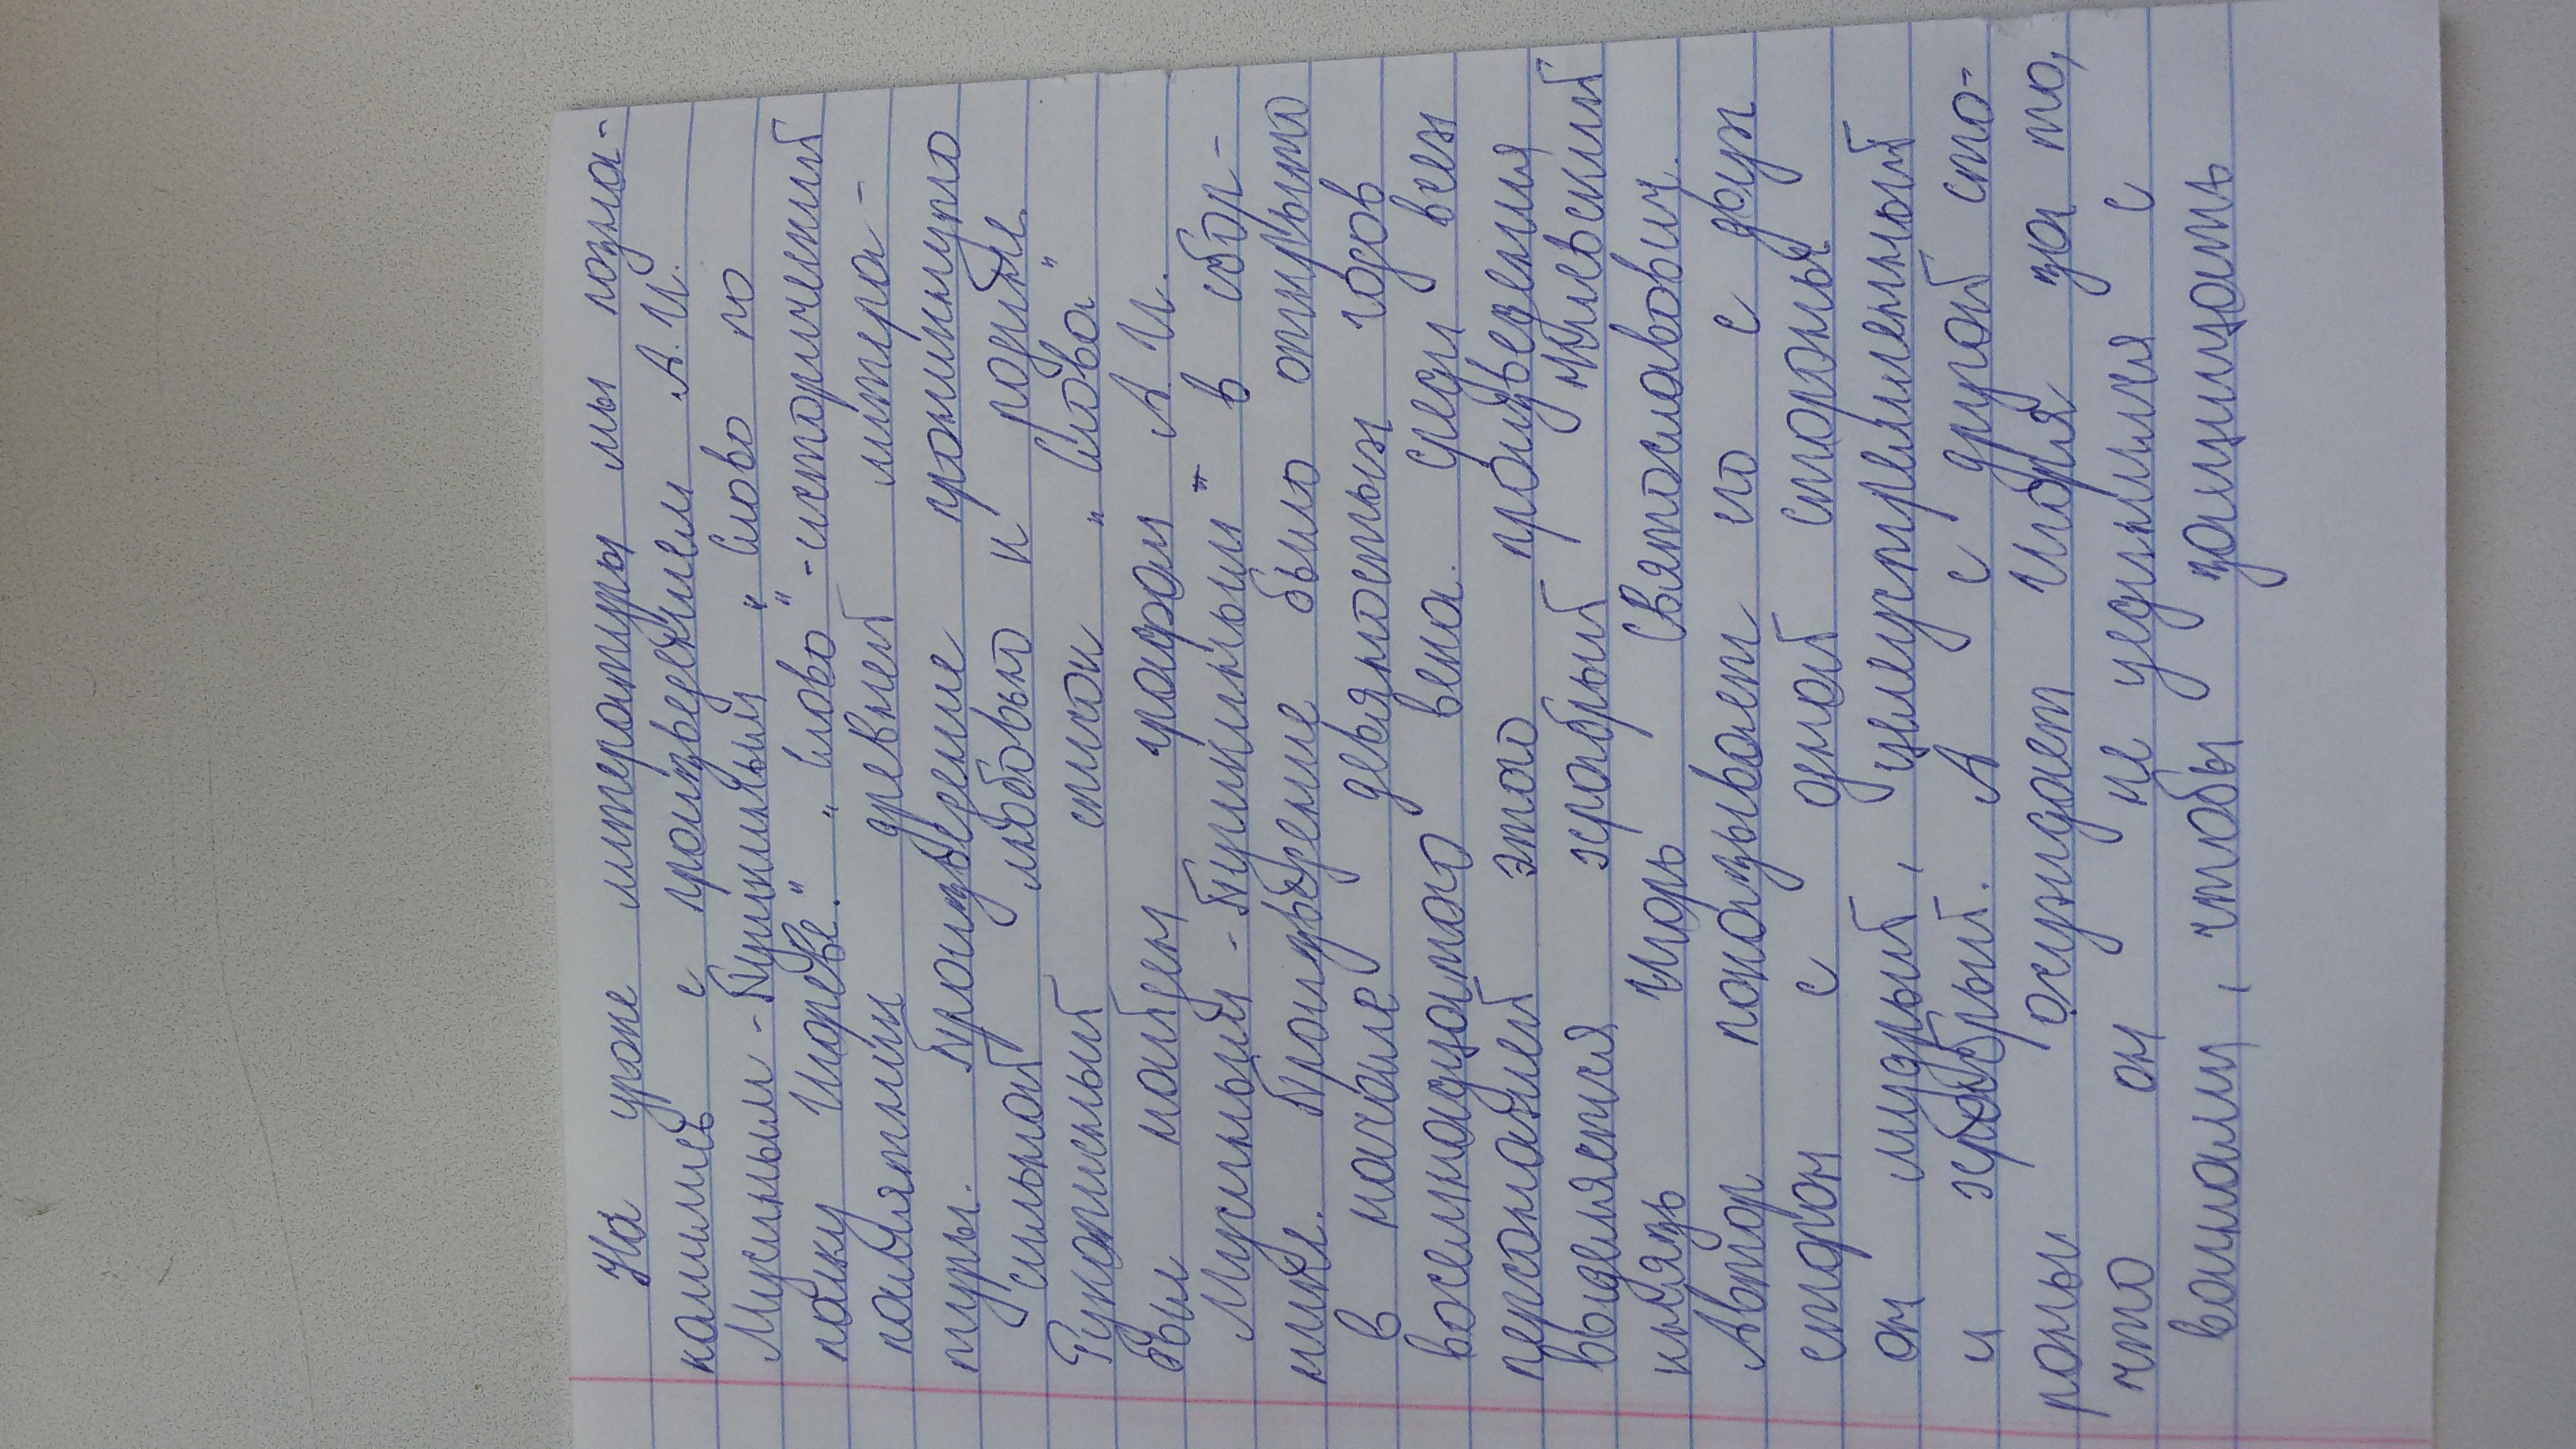 На уроке литературы мы позна-
комились с произведением А.И.
Мусиным-Пушкиным „Слово по
полку Игореве." „Слово"-исторический
памятник древней литера-
туры. Произведение проникнуто
сильной любовью к родине.
Рукописный список „Слова"
был найден графом А.И.
Мусиным-Пушкиным в сбор-
нике. Произведение было открыто
в начале девяностых годов
восемнадцатого века. Среди всех
персонажей этого произведения
выделяется храбрый киевский
князь Игорь Святославович.
Автор показывает его с двух
сторон с одной стороны
он мудрый, целеустремленный
и храбрый. А с другой сто-
роны осуждает Игоря за то,
что он не уединился с
войнами, чтобы защищать